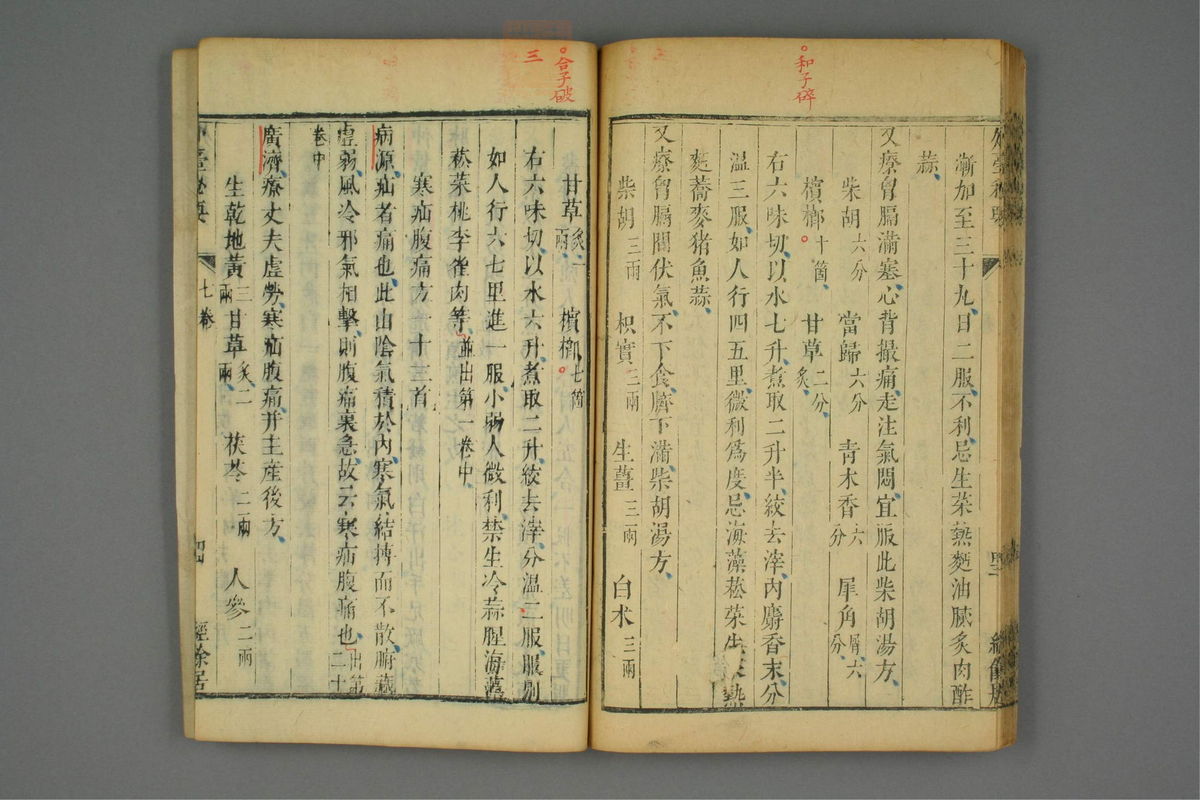 和子碎
漸加至三十丸日二服不利忌生菜熱麪油膩炙肉酢
蒜
又療胷膈滿塞心背撮痛走注氣悶宜服此柴胡湯方
柴胡六分 當歸六分 青木香六分 犀角屑六分
檳榔十箇 甘草二分炙
右六味切以水七升煮取二升半絞去滓內麝香末分
溫三服如人行四五里微利爲度忌海藻菘菜生 熱
麪蕎麥猪魚蒜
又療胷膈間伏氣不下食臍下滿柴胡湯方
柴胡三兩 枳實三兩 生薑三兩 白朮三兩
合子破
三
甘草炙一兩 檳榔七箇
右六味切以水六升煮取二升絞去滓分溫二服服別
如人行六七里進一服小弱人微利禁生冷蒜腥海藻
菘菜桃李雀肉等並出第一卷中
寒疝腹痛方一十三首
病源疝者痛也此由陰氣積於內寒氣結搏而不散腑臟
虛弱風冷邪氣相擊則腹痛裏急故云寒疝腹痛也出第二十
卷中
廣濟療丈夫虛勞寒疝腹痛并主產後方
生乾地黃三兩 甘草炙二兩 茯苓二兩 人參二兩
七卷
經餘居